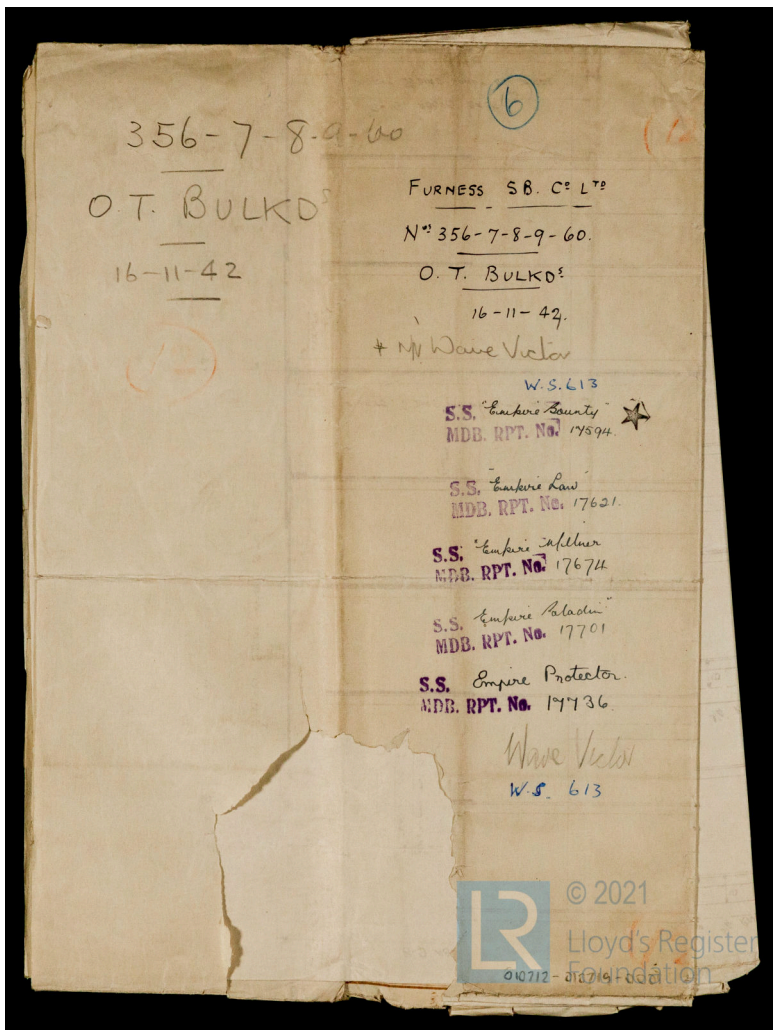 356-7-8-9-60
O.T. BULKDS
16-11-42
12
6
(12
FURNESS SB. Co LTD
Nos 356-7-8-9-60.
O.T. BULKDS.
16-11-42.
Wave Victor
W.S.613
S.S. "Empire Bounty"
MDB. RPT. No. 17594.
S.S. "Empire Law"
MDB. RPT. No. 17621.
S.S. "Empire Milner
MDB. RPT. No. 17674
S.S. Empire Paladin"
MDB. RPT. No. 17701
S.S. Empire Protector.
MDB. RPT. No. 17736.
Wave Victor
W.S. 613
LR
© 2021
Lloyd's Register
Foundation